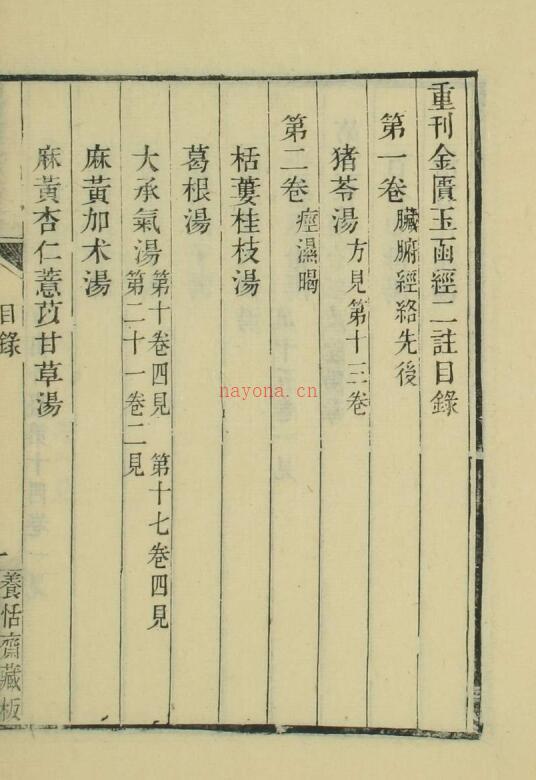 重刊金匱玉函經二註目錄
第一卷 臟腑經絡先後
猪苓湯 方見第十三卷
第二卷 痙濕暍
栝蔞桂枝湯
葛根湯
大承氣湯 第十卷四見 第十七卷四見
第二十一卷二見
麻黃加术湯
麻黃杏仁薏苡甘草湯
目錄
一
養恬齋藏板
nayona.cn